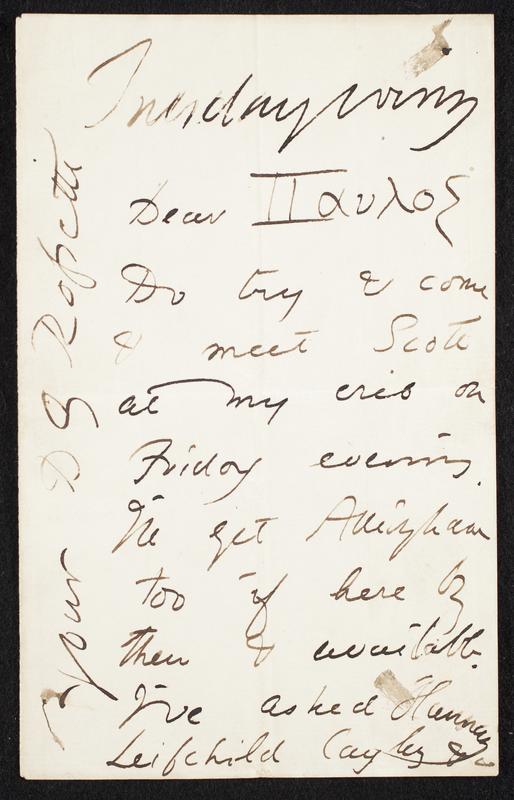 Tuesday evng
Dear Παυλος
Do try & come
& meet Scott
at my crib on
Friday evening.
I'll get Allingham
too if here by
then & available.
I've asked Hannay
Leifchild Cayley &c
Your DG Rossetti